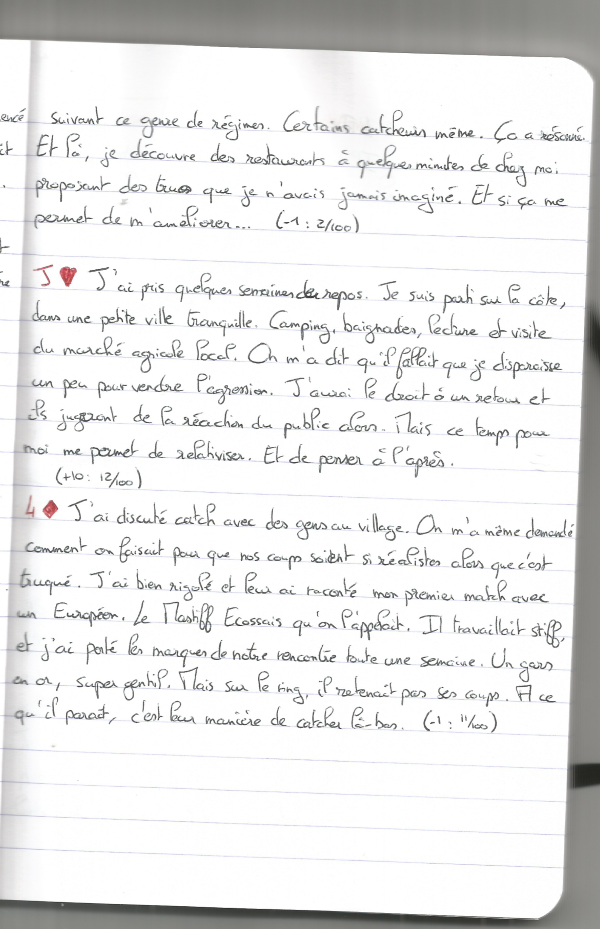 encé suivant ce genre de régimes. Certains catcheurs même. Ça a résonné.
it Et là, je découvre des restaurants à quelques minutes de chez moi
. proposant des trucs que je n'avais jamais imaginé. Et si ça me
permet de m'améliorer... (-1 : 2/100)
J ♥ J'ai pris quelques semaines de repos. Je suis parti sur la côte,
dans une petite ville tranquille. Camping, baignades, lecture et visite
du marché agricole local. On m'a dit qu'il fallait que je disparaisse
un peu pour vendre l'agression. J'aurai le droit à un retour et
ils jugeront de la réaction du public alors. Mais ce temps pour
moi me permet de relativiser. Et de penser à l'après.
(+10 : 12/100)
4 ♦ J'ai discuté catch avec des gens au village. On m'a même demandé
comment on faisait pour que nos coups soient si réalistes alors que c'est
truqué. J'ai bien rigolé et leur ai raconté mon premier match avec
un Européen. Le Mastiff Ecossais qu'on l'appelait. Il travaillait stiff,
et j'ai porté les marques de notre rencontre toute une semaine. Un gars
en or, super gentil. Mais sur le ring, il retenait pas ses coups. A ce
qu'il parait, c'est leur manière de catcher là-bas. (-1 : 11/100)